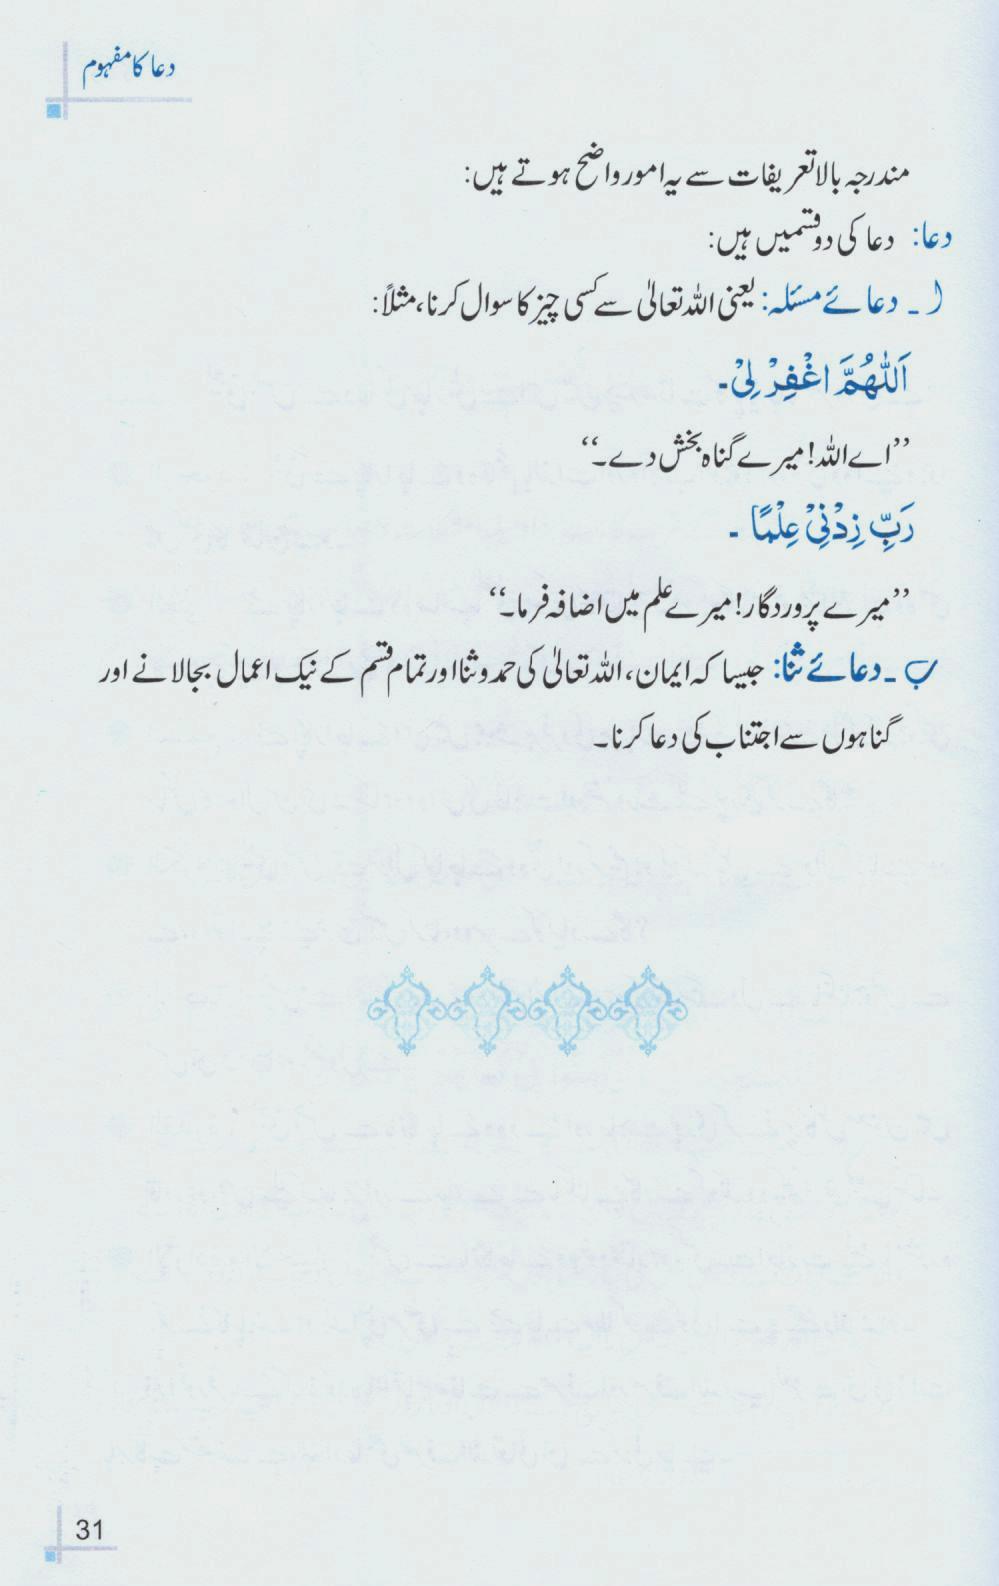 دعا کا مفہوم
مندرجہ بالا تعریفات سے یہ امور واضح ہوتے ہیں:
دعا: دعا کی دو قسمیں ہیں:
ا ۔ دعائے مسئلہ: یعنی اللہ تعالیٰ سے کسی چیز کا سوال کرنا، مثلاً:
اَللّٰهُمَّ اغْفِرْ لِیْ۔
’’اے اللہ! میرے گناہ بخش دے۔‘‘
رَبِّ زِدْنِیْ عِلْمًا ۔
’’میرے پروردگار! میرے علم میں اضافہ فرما۔‘‘
ب ۔ دعائے ثنا: جیسا کہ ایمان، اللہ تعالیٰ کی حمد و ثنا اور تمام قسم کے نیک اعمال بجالانے اور
گناہوں سے اجتناب کی دعا کرنا۔
31